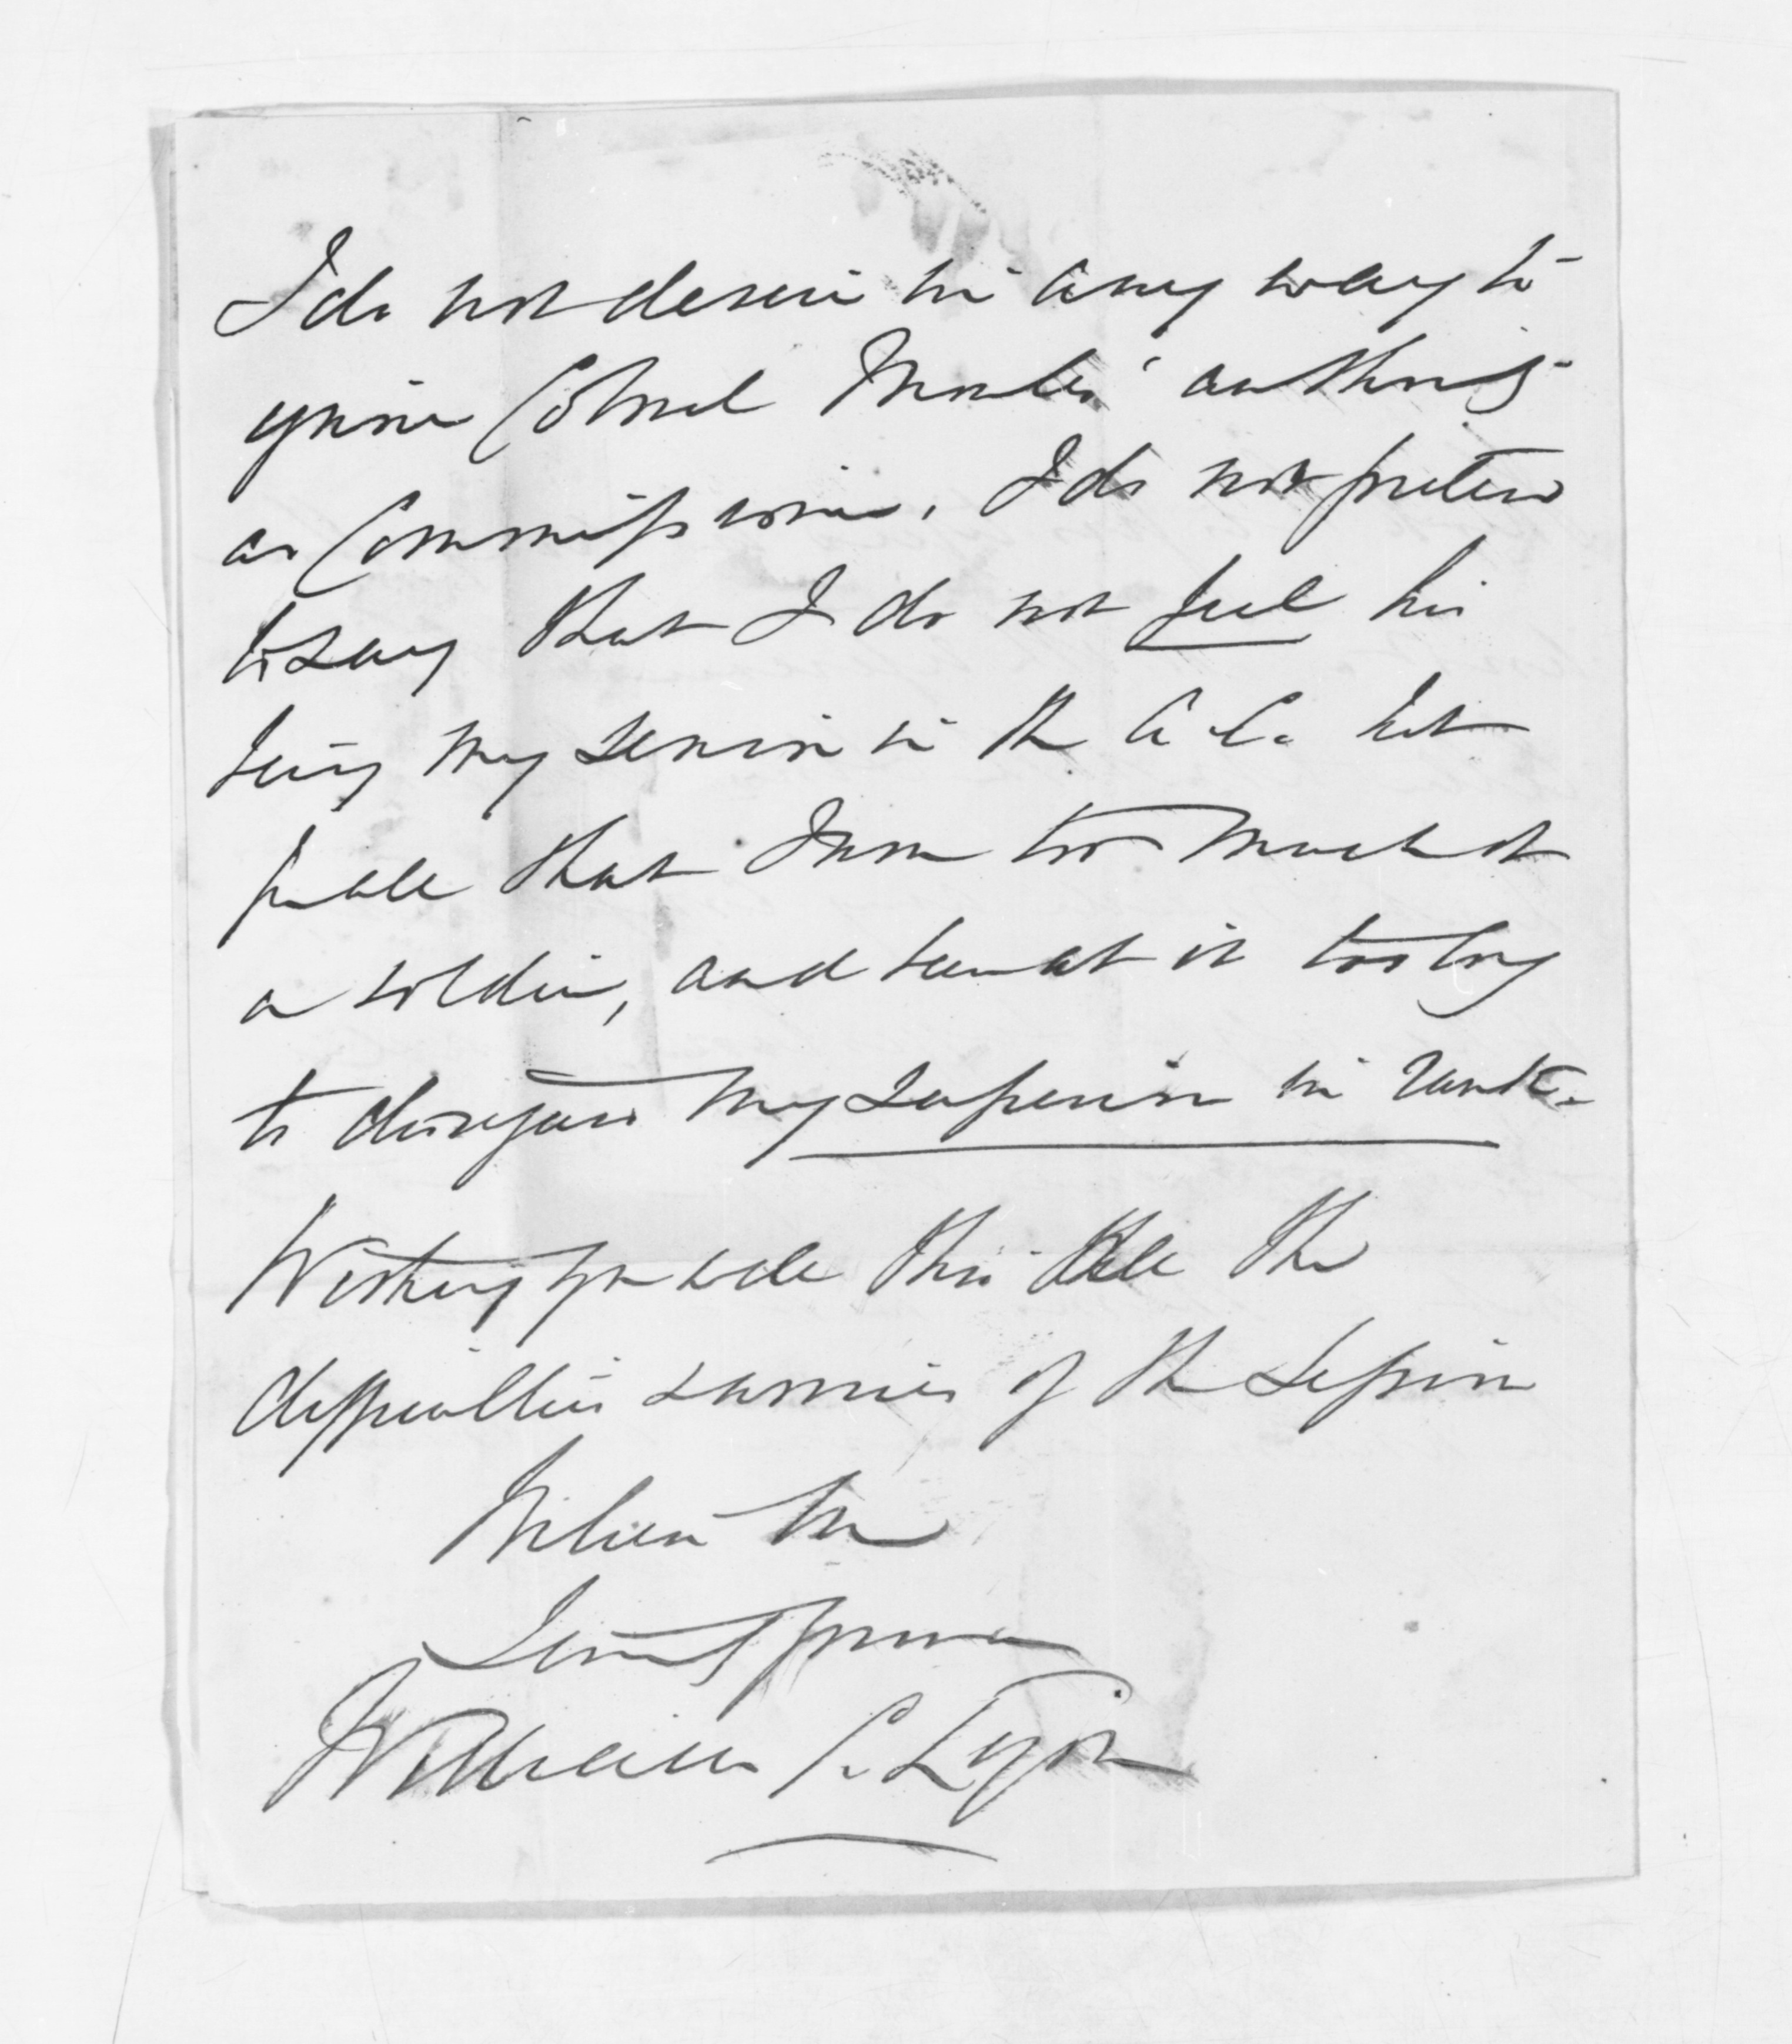 I do not desire in any way to
ignore Colonel authority
as Commissioner. I do not pretend
to say that I do not feel his
being my senior in the A. C. but
you all that I am too much of
a soldier, and been at it too long
to disregard my superior in rank.
Wishing you well thro' all the
difficulties & worries of the Session
Believe me
Sincerely yours
William P. Lyon